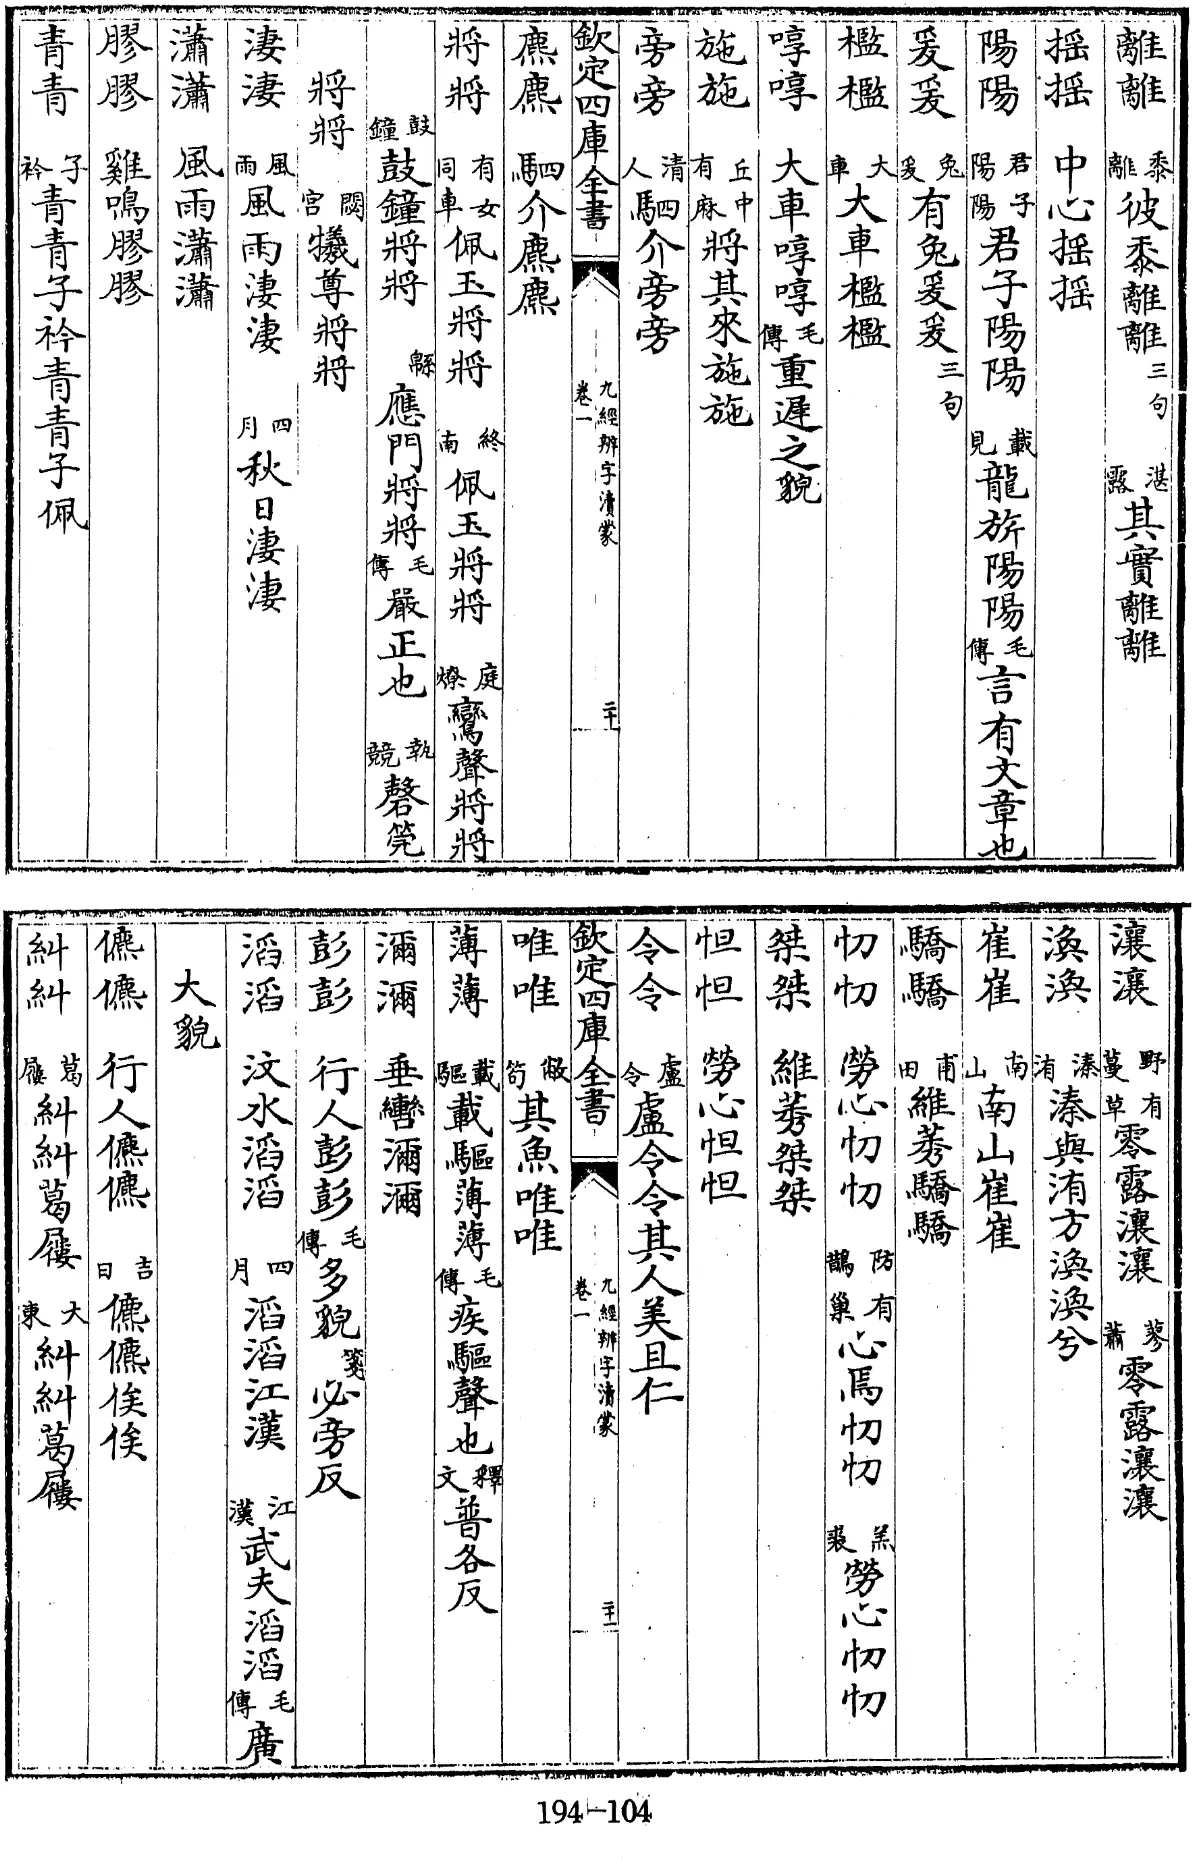 離離 黍離彼黍離離三句 湛露其實離離
搖搖 中心搖搖
陽陽 君子陽陽君子陽陽 載見龍旂陽陽毛傳言有文章也
爰爰 兔爰有兔爰爰三句
檻檻 大車大車檻檻
啍啍 大車啍啍毛傳重遲之貌
施施 丘中有麻將其來施施
旁旁 清人駟介旁旁
欽定四庫全書 九經辨字瀆蒙 卷一 二十
麃麃 駟介麃麃
將將 有女同車佩玉將將 終南佩玉將將 庭燎鸞聲將將
鼓鐘鼓鐘將將 緜應門將將毛傳嚴正也 執競磬筦
將將 閟宮犧尊將將
淒淒 風雨風雨淒淒 四月秋日淒淒
瀟瀟 風雨瀟瀟
膠膠 雞鳴膠膠
青青 子衿青青子衿青青子佩
瀼瀼 野有蔓草零露瀼瀼 蓼蕭零露瀼瀼
渙渙 溱洧溱與洧方渙渙兮
崔崔 南山南山崔崔
驕驕 甫田維莠驕驕
忉忉 勞心忉忉 防有鵲巢心焉忉忉 羔裘勞心忉忉
桀桀 維莠桀桀
怛怛 勞心怛怛
令令 盧令盧令令其人美且仁
欽定四庫全書 九經辨字瀆蒙 卷一 二十一
唯唯 敝笱其魚唯唯
薄薄 載驅載驅薄薄毛傳疾驅聲也釋文普各反
濔濔 垂轡濔濔
彭彭 行人彭彭毛傳多貌箋必旁反
滔滔 汶水滔滔 四月滔滔江漢 江漢武夫滔滔毛傳廣
大貌
儦儦 行人儦儦 吉日儦儦俟俟
糾糾 葛屨糾糾葛屨 大東糾糾葛屨
194-104